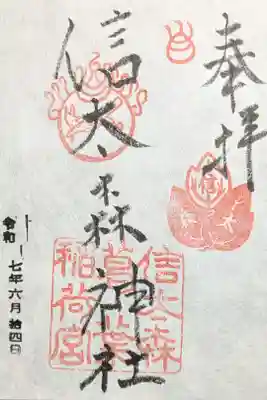 奉拝
信太森神社
信太森
葛葉
稲荷宮
令和 七年六月拾四日